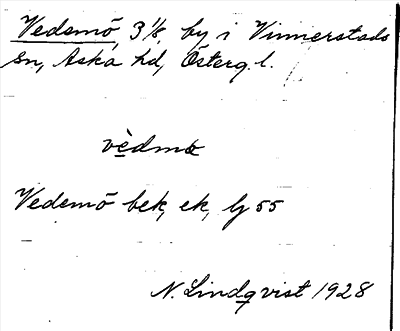 Vedemö, 3 1/8, by i Vinnerstads
sn, Aska hd, Österg. l.
vèdmœ
Vedemö bek, ek, lj 55
N. Lindqvist 1928